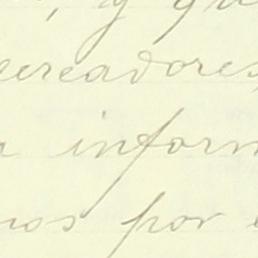 , y
ereadores,
inform
nos por